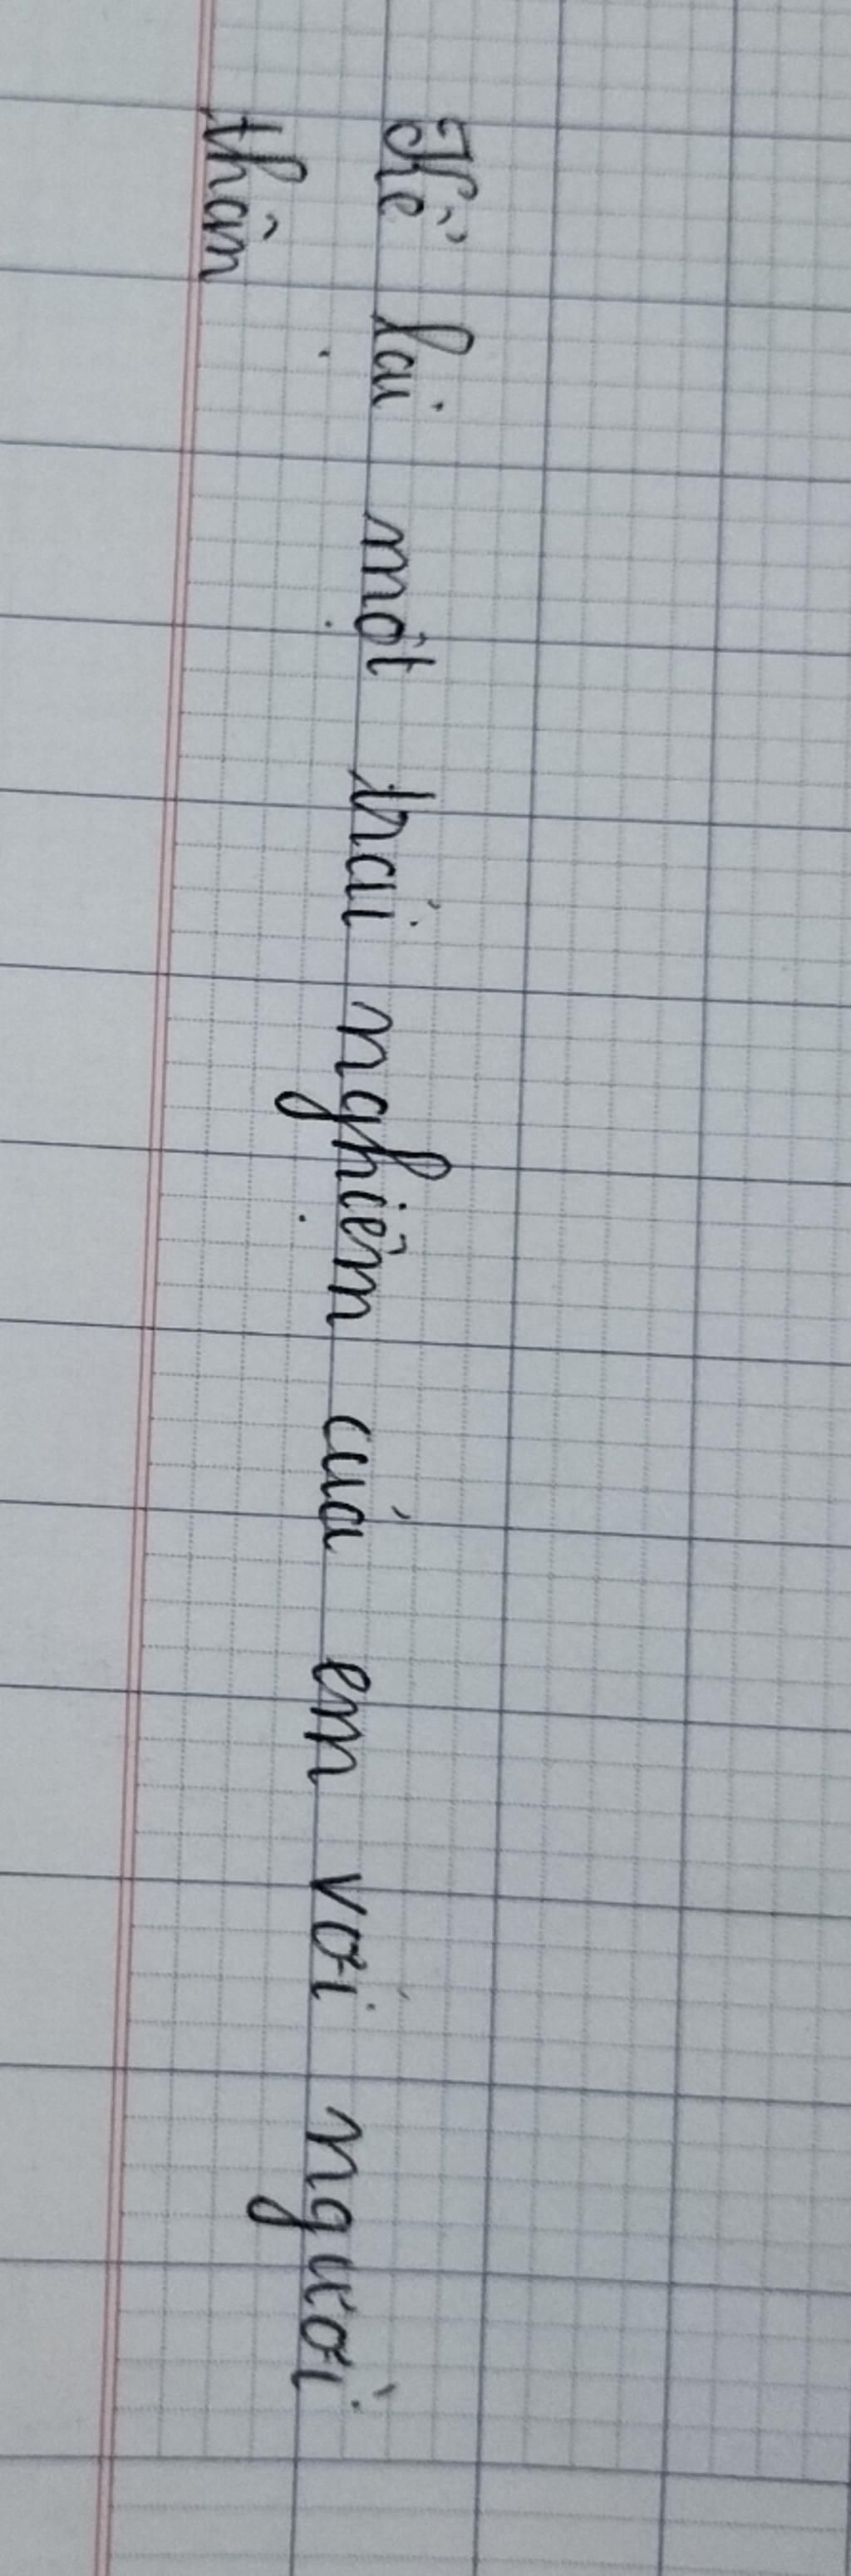 Kể lại một trải nghiệm của em với người
thân